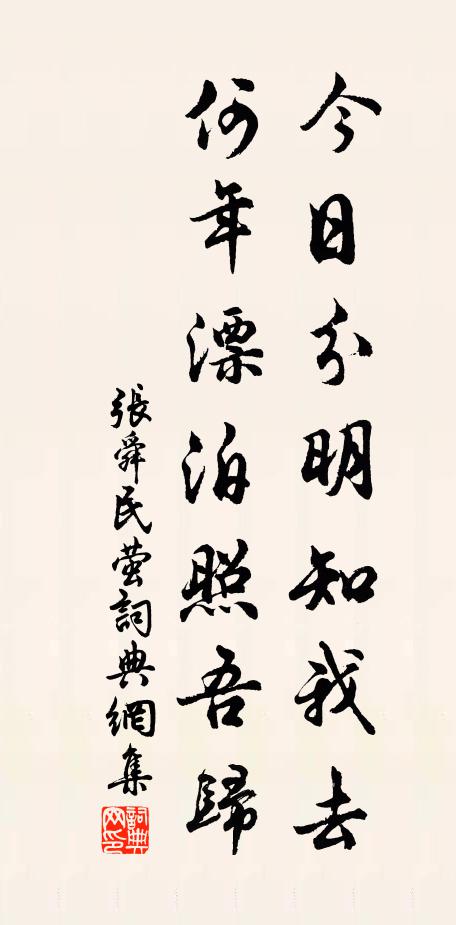 今日分明知我去
何年漂泊照吾歸
張舜民萤詞典網集
詞典網印